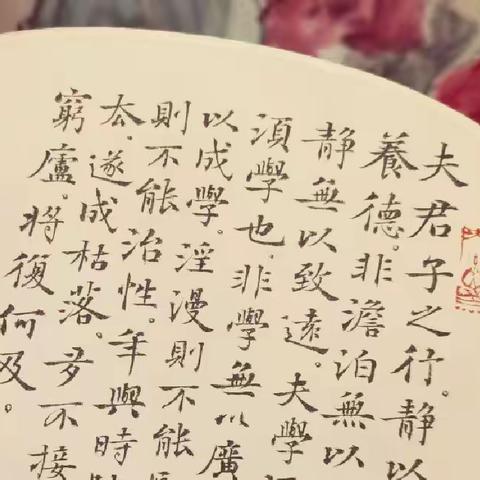 夫君子之行。静以
養德。非澹泊無以
静無以致遠。夫學
須學也。非學無以廣
以成學。淫漫則不能
則不能治性。年與時
去。遂成枯落。多不接
窮廬。將復何及。